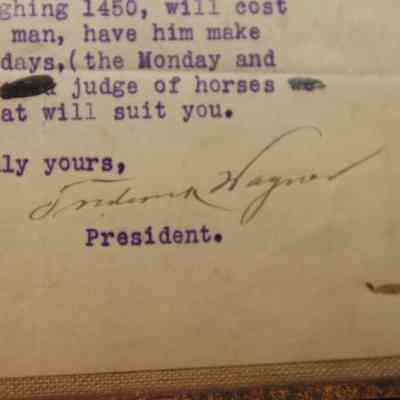 ghing 1450, will cost
man, have him make
days,(the Monday and
judge of horses
at will suit you.
ly yours,
Frederick Wagner
President.